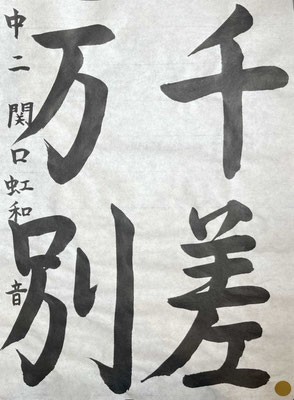 千差
万別
中二 関口虹和音